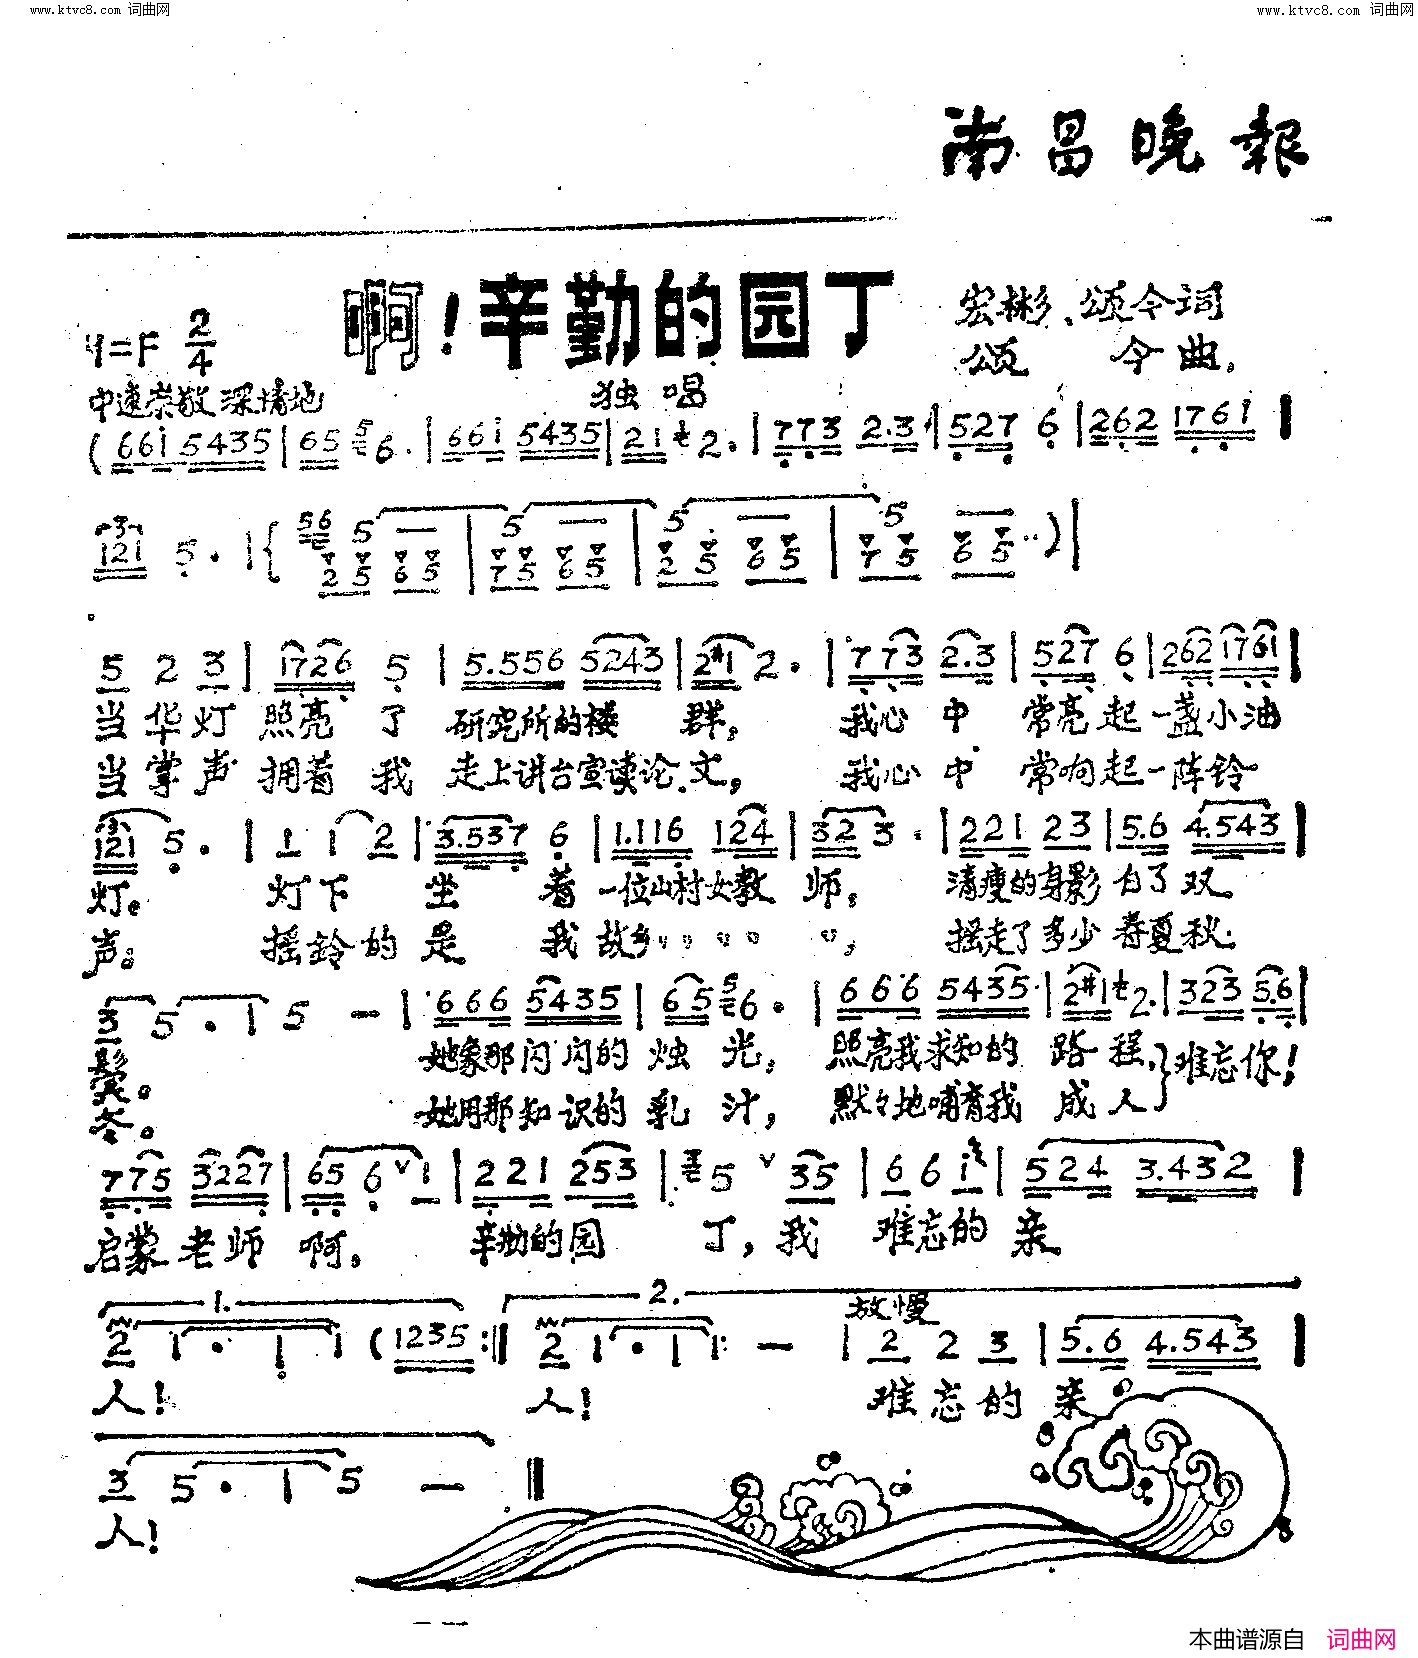 www.ktvc8.com 词曲网
www.ktvc8.com 词曲网
南昌晚報
啊！辛勤的园丁
1=F 2/4
宏彬、颂今词
颂今曲.
中速崇敬 深情地
独唱
(661 5435 | 65 5 6. | 661 5435 | 21 2. | 773 2.3 | 527 6 | 262 1761 |
3
121 5. | { 56 5 — | 5 — | 5 — | 5 — ) |
25 65 | 75 65 | 25 65 | 75 65
5 2 3 | 1726 5 | 5.556 5243 | 2#1 2. | 773 2.3 | 527 6 | 262 1761 |
当华灯 照亮了 研究所的楼群, 我心中 常亮起一盏小油
当掌声 拥着我 走上讲台宣读论文, 我心中 常响起一阵铃
121 5. | 1 1 2 | 3.537 6 | 1.116 124 | 32 3. | 221 23 | 5.6 4.543 |
灯。 灯下 坐着 一位山村女教师, 清瘦的身影 白了双.
声。 摇铃的是 我故乡〃〃〃〃 〃, 摇走了多少春夏秋.
3 5. 1 | 5 — | 666 5435 | 65 5 6. | 666 5435 | 2#1 2. | 323 5.6 |
鬓。 她象那闪闪的烛光, 照亮我求知的路程, 难忘你！
冬。 她用那知识的乳汁, 默々地哺育我成人
775 3227 | 65 6 ∨ 1 | 221 253 | 5 ∨ 35 | 6 6 1 | 524 3.432 |
启蒙老师啊, 辛勤的园丁, 我难忘的亲
1. 2.
放慢
2 1. 1 1 (1235 :| 2 1. 1 1 — | 2 2 3 | 5.6 4.543 |
人！ 人！ 难忘的亲
3 5. 1 5 —
人！
本曲谱源自 词曲网